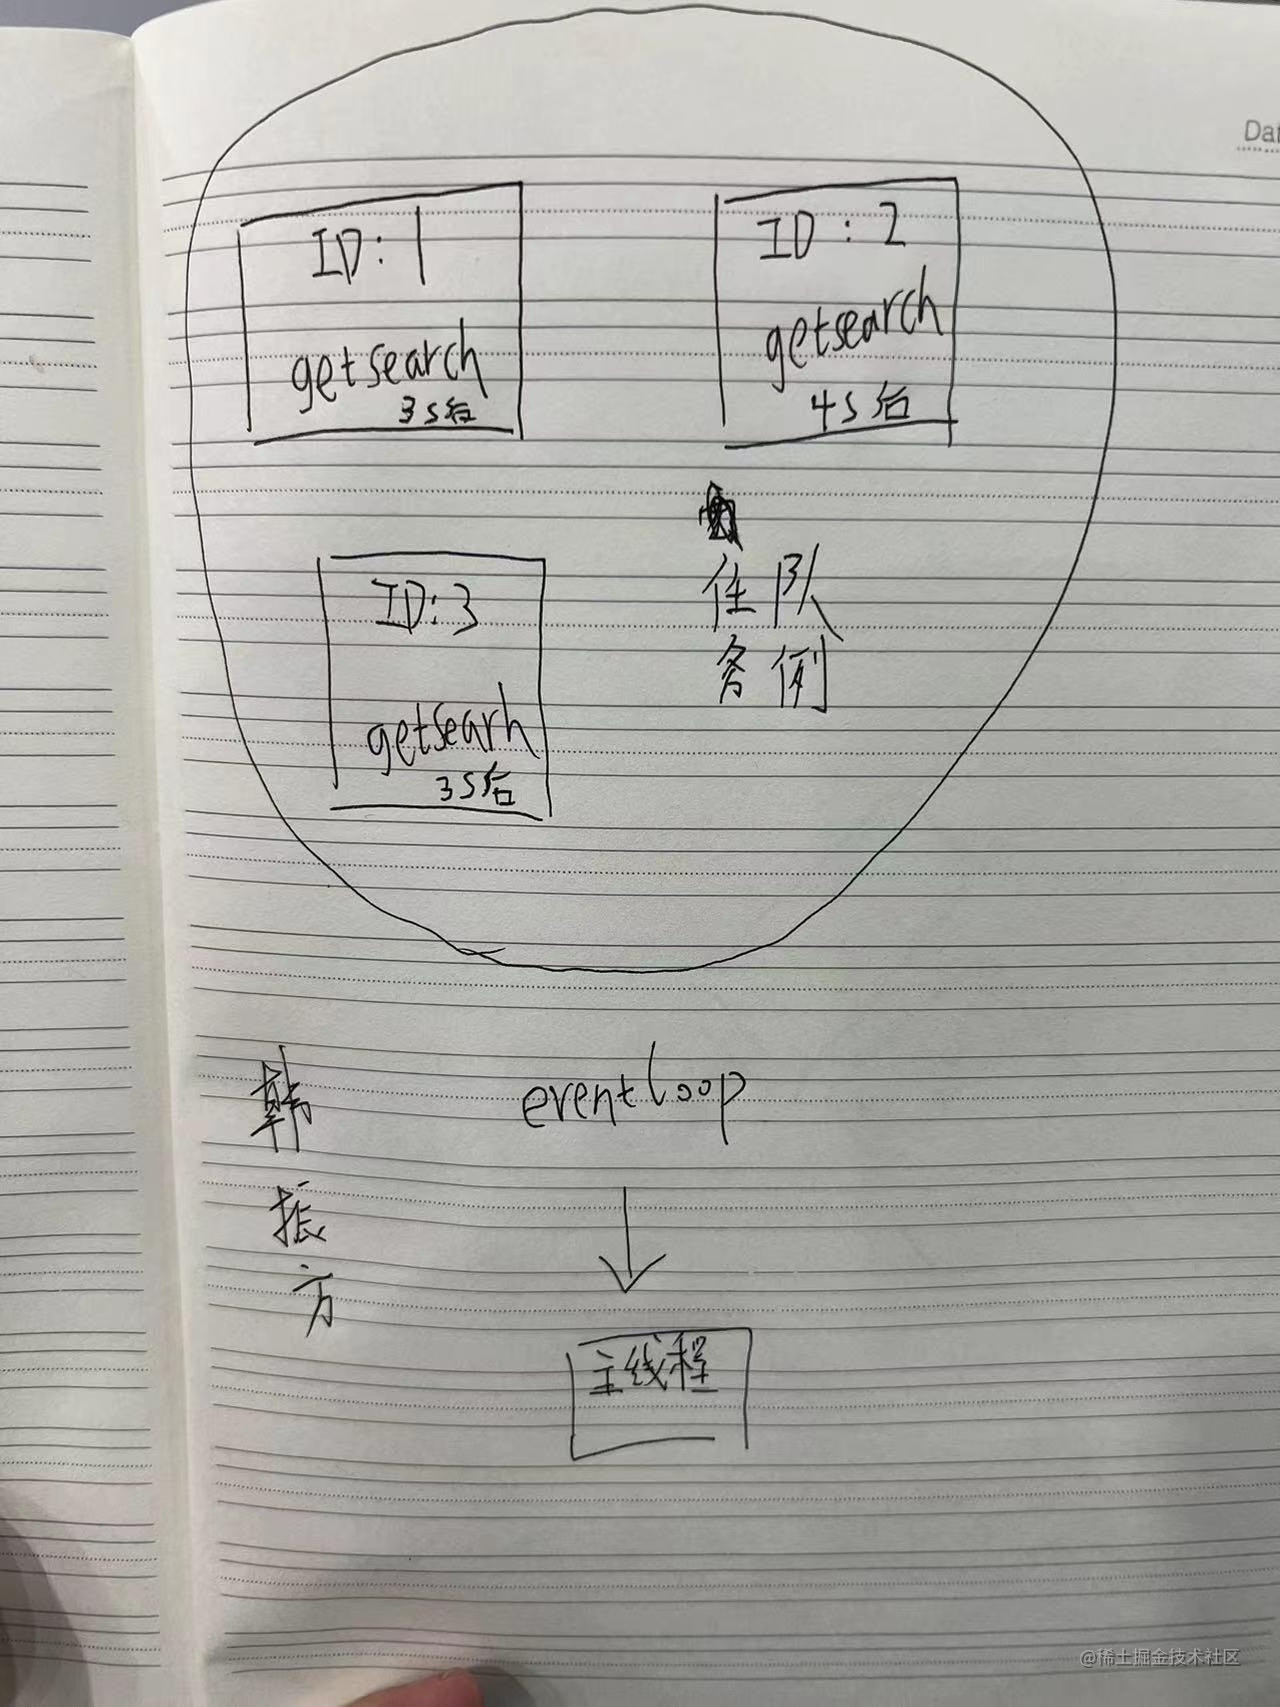 Da
ID: 1
getsearch
3s后
ID : 2
getsearch
4s后
ID: 3
getsearh
3s后
任队
务例
eventloop
韩
振
方
主线程
@稀土掘金技术社区